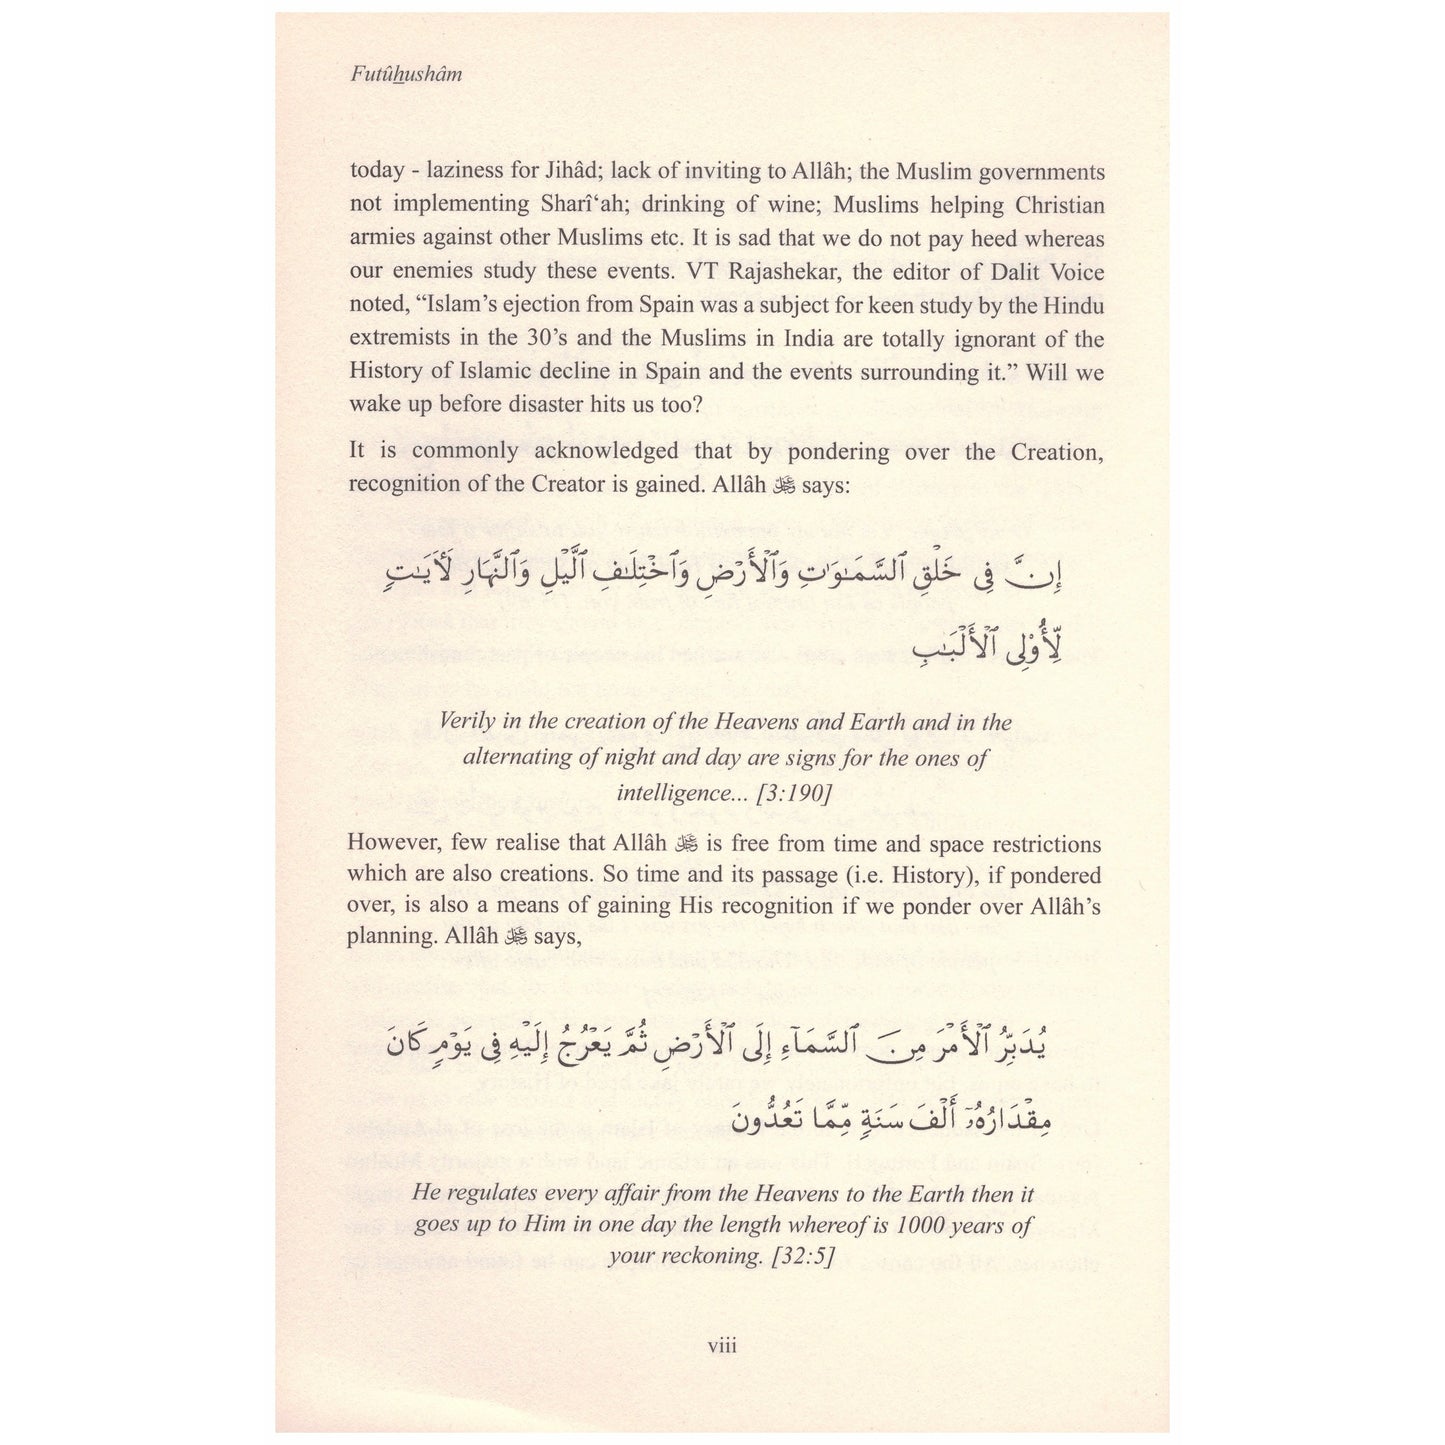 Futûhushâm
today - laziness for Jihâd; lack of inviting to Allâh; the Muslim governments
not implementing Sharî‘ah; drinking of wine; Muslims helping Christian
armies against other Muslims etc. It is sad that we do not pay heed whereas
our enemies study these events. VT Rajashekar, the editor of Dalit Voice
noted, “Islam’s ejection from Spain was a subject for keen study by the Hindu
extremists in the 30’s and the Muslims in India are totally ignorant of the
History of Islamic decline in Spain and the events surrounding it.” Will we
wake up before disaster hits us too?
It is commonly acknowledged that by pondering over the Creation,
recognition of the Creator is gained. Allâh says:
إِنَّ فِى خَلْقِ ٱلسَّمَـٰوَٰتِ وَٱلْأَرْضِ وَٱخْتِلَـٰفِ ٱلَّيْلِ وَٱلنَّهَارِ لَـَٔايَـٰتٍ
لِّأُو۟لِى ٱلْأَلْبَـٰبِ
Verily in the creation of the Heavens and Earth and in the
alternating of night and day are signs for the ones of
intelligence... [3:190]
However, few realise that Allâh is free from time and space restrictions
which are also creations. So time and its passage (i.e. History), if pondered
over, is also a means of gaining His recognition if we ponder over Allâh’s
planning. Allâh says,
يُدَبِّرُ ٱلْأَمْرَ مِنَ ٱلسَّمَآءِ إِلَى ٱلْأَرْضِ ثُمَّ يَعْرُجُ إِلَيْهِ فِى يَوْمٍ كَانَ
مِقْدَارُهُۥٓ أَلْفَ سَنَةٍ مِّمَّا تَعُدُّونَ
He regulates every affair from the Heavens to the Earth then it
goes up to Him in one day the length whereof is 1000 years of
your reckoning. [32:5]
viii